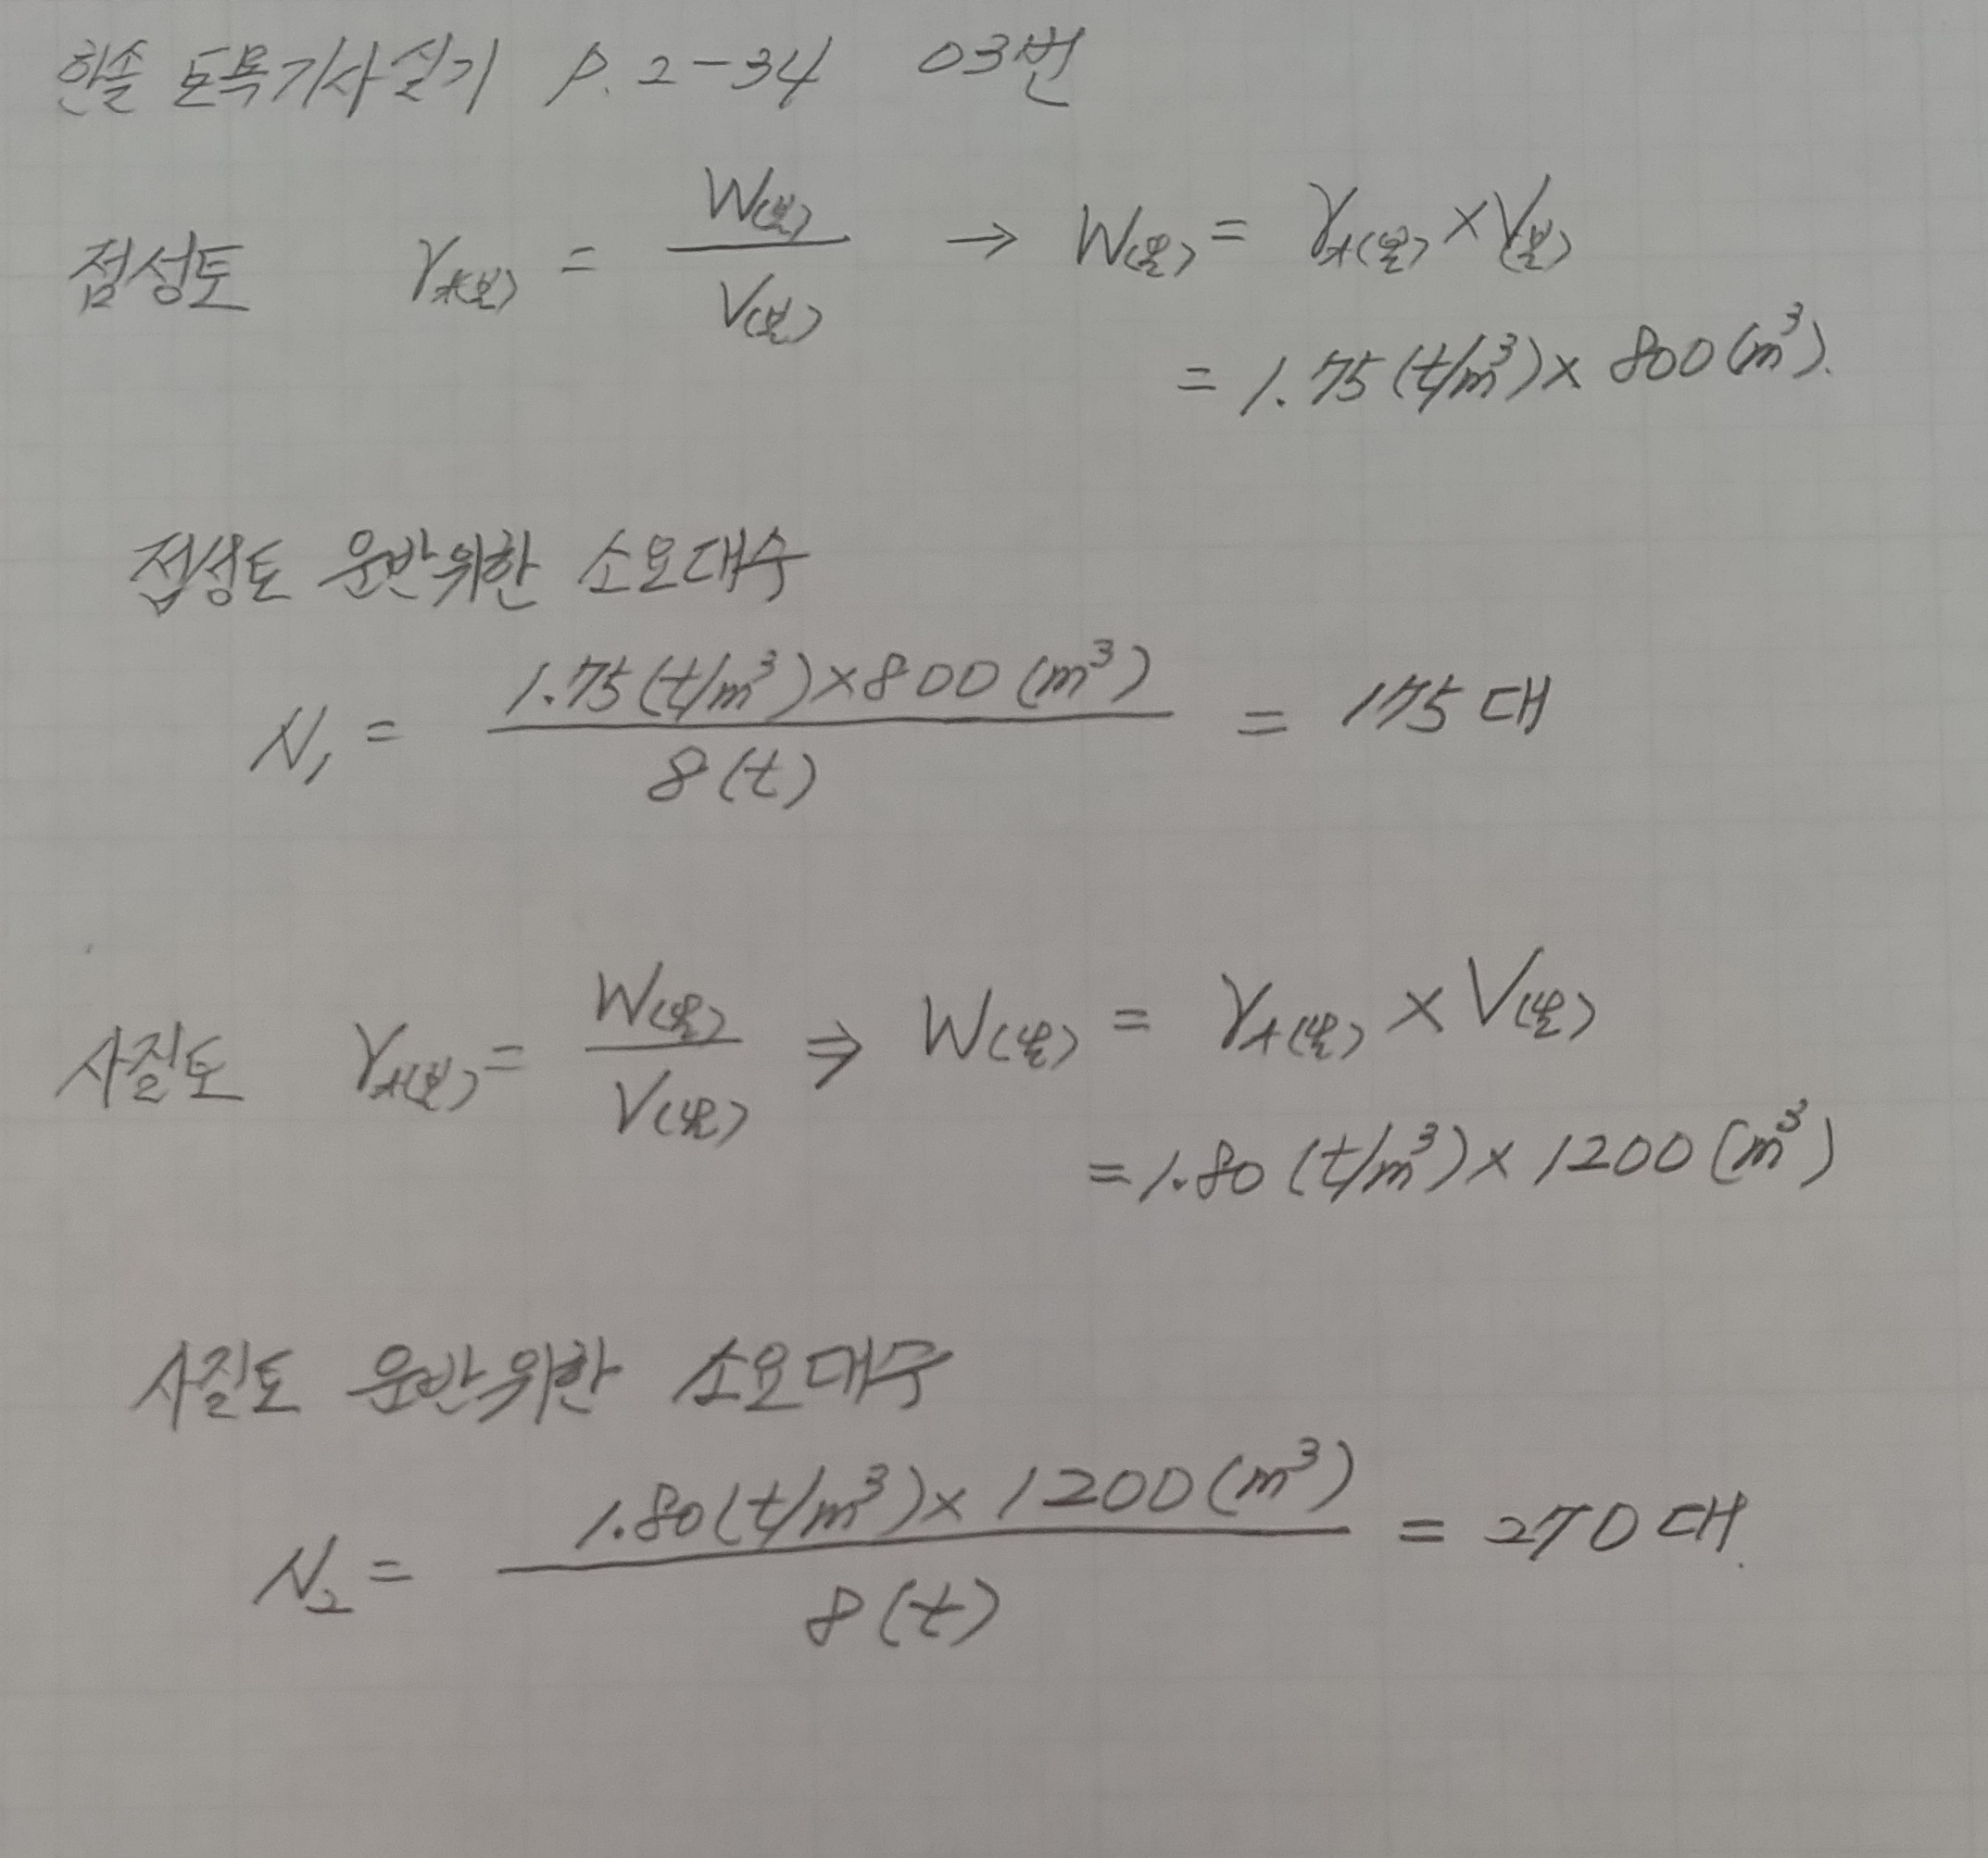 한솔 토목기사실기 P. 2-34 03번
점성토 γt(본) = W(본) / V(본) → W(본) = γt(본) × V(본)
= 1.75(t/m³) × 800(m³).
점성토 운반위한 소요대수
N₁ = 1.75(t/m³)×800(m³) / 8(t) = 175대
사질토 γt(본) = W(본) / V(본) ⇒ W(본) = γt(본) × V(본)
= 1.80(t/m³) × 1200(m³)
사질토 운반위한 소요대수
N₂ = 1.80(t/m³) × 1200(m³) / 8(t) = 270대.